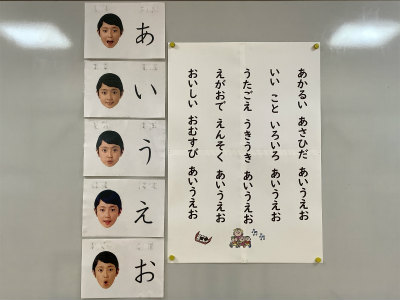 あ
い
う
え
お
あかるい あさひだ あいうえお
いい こと いろいろ あいうえお
うたごえ うきうき あいうえお
えがおで えんそく あいうえお
おいしい おむすび あいうえお